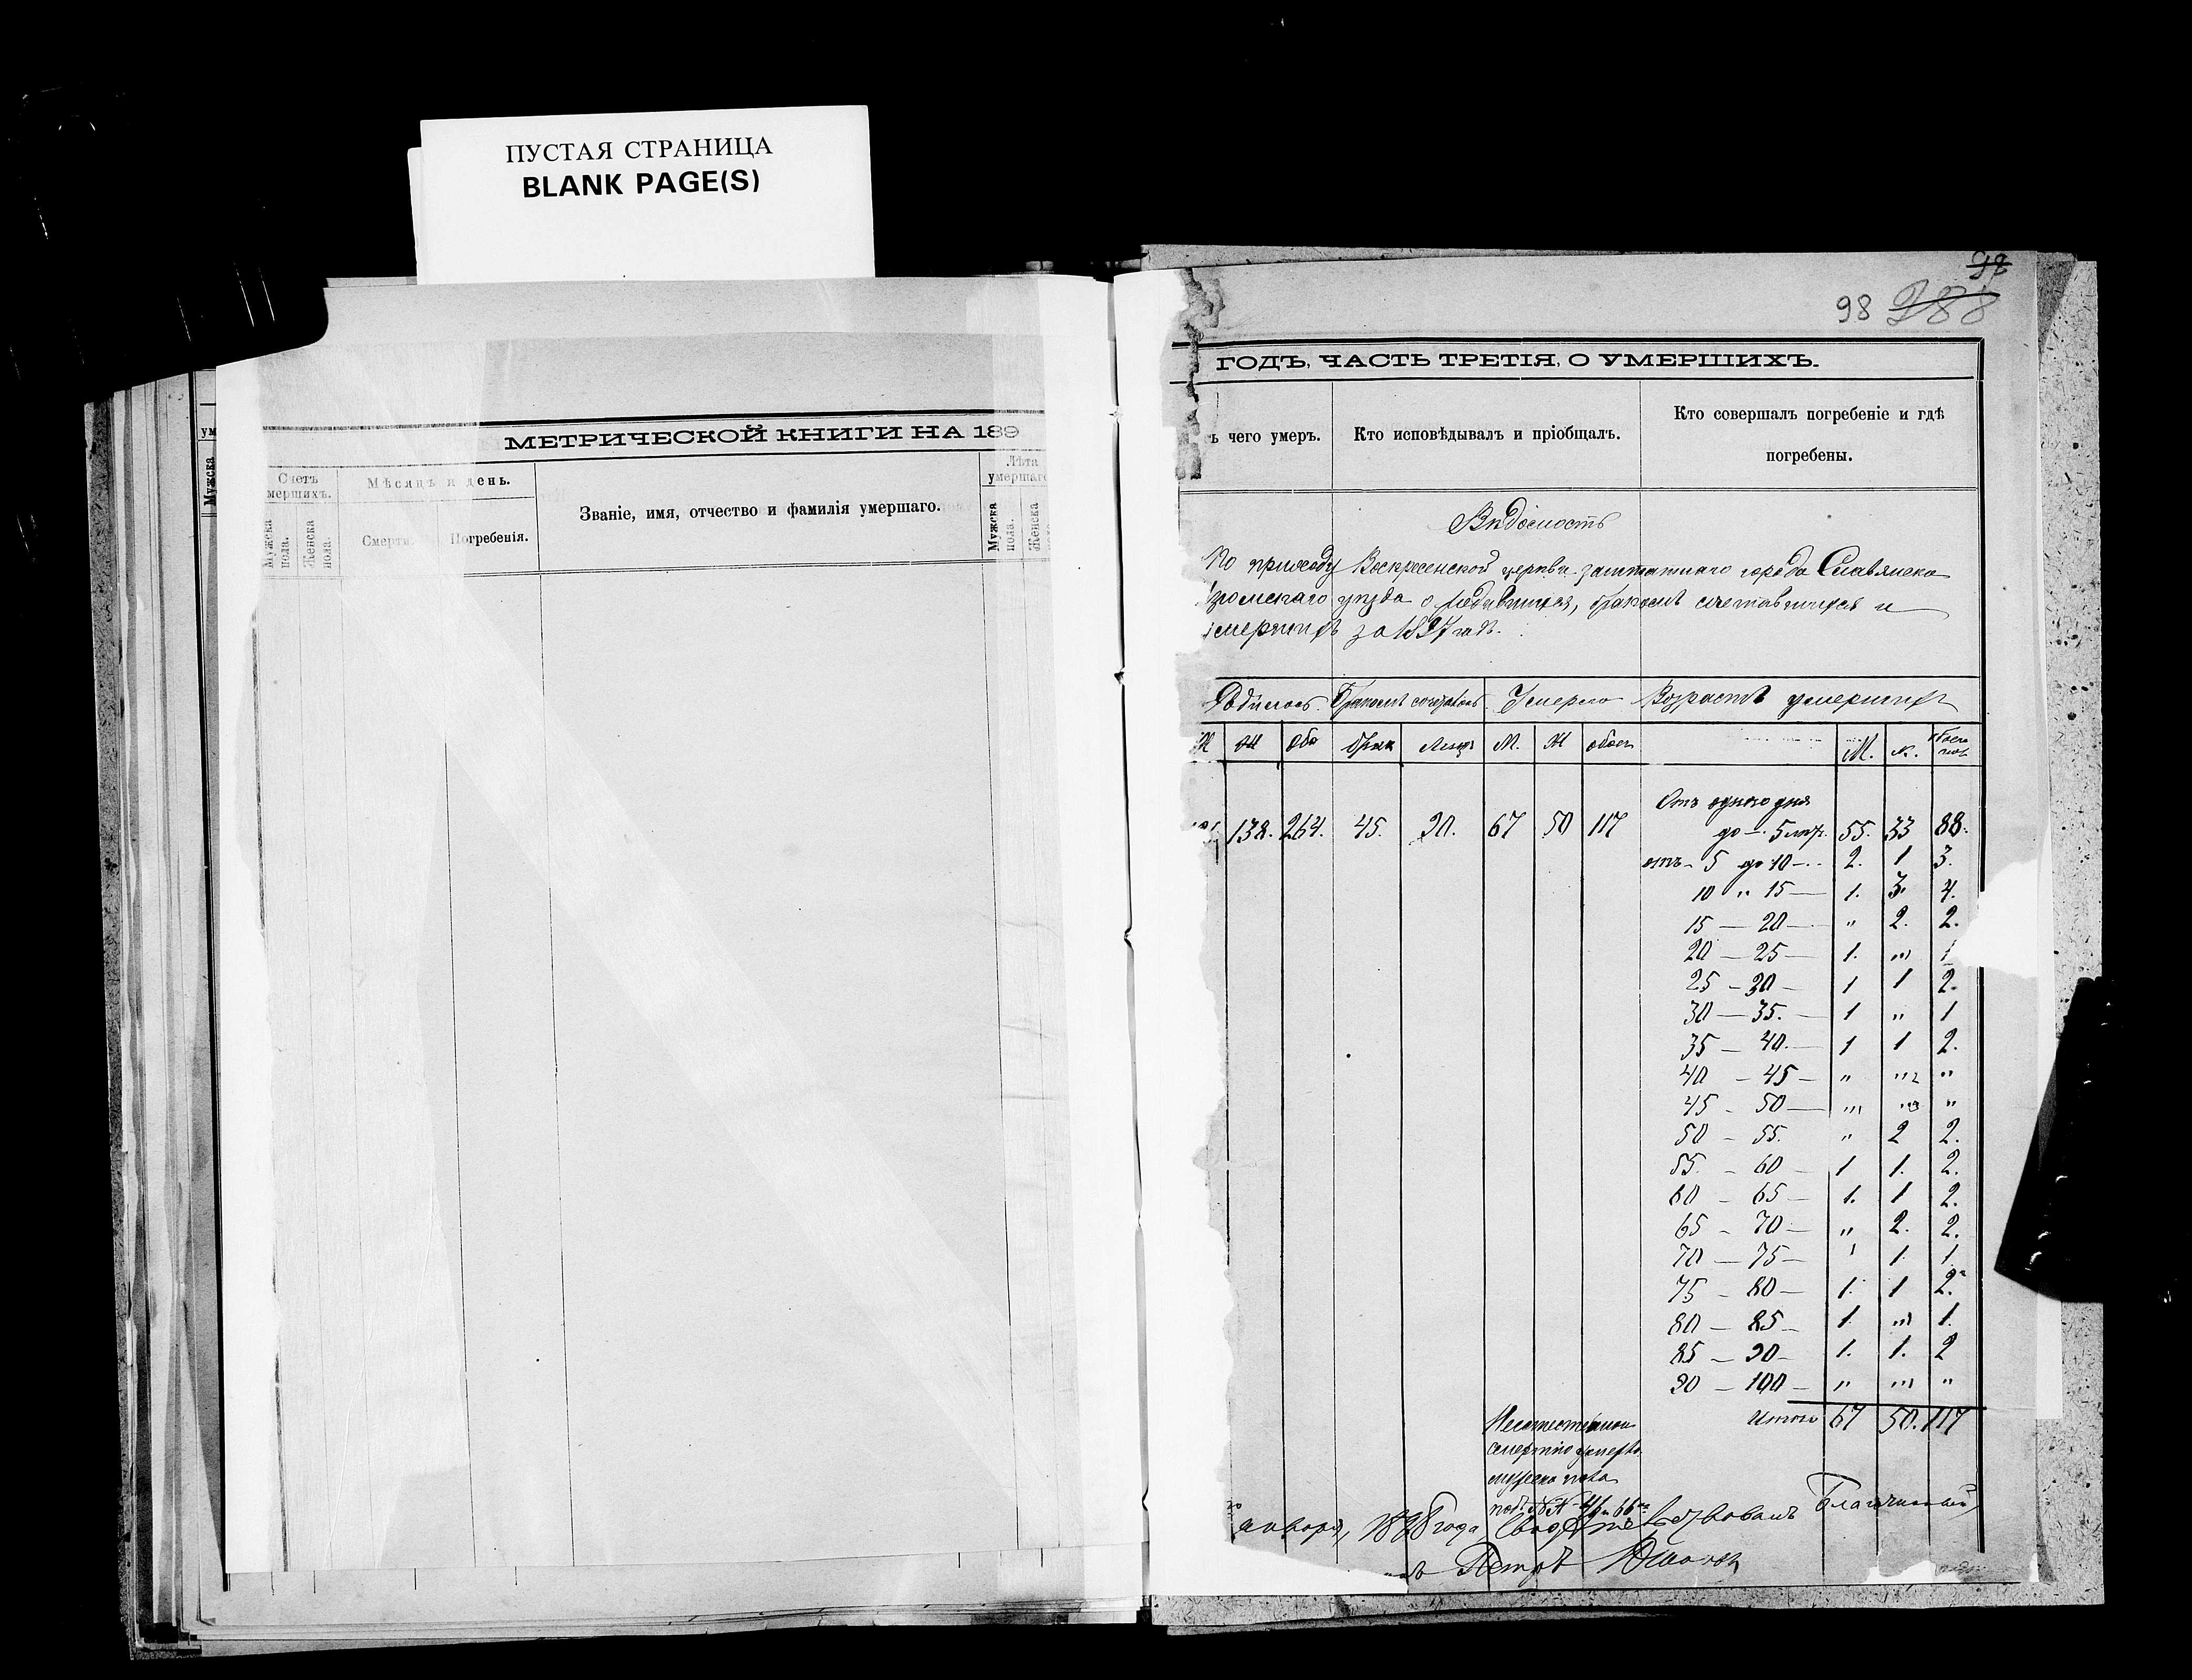 ПУСТАЯ СТРАНИЦА
BLANK PAGE(S)
МЕТРИЧЕСКОЙ КНИГИ НА 189
Счетъ
мершихъ.
Мѣсяцъ и день.
Званіе, имя, отчество и фамилія умершаго.
Лѣта
умершаго
Мужска
пола.
Женска
пола.
Смерти.
Погребенія.
Мужска
пола.
Женска
98
ГОДЪ, ЧАСТЬ ТРЕТІЯ, О УМЕРШИХЪ.
ъ чего умеръ.
Кто исповѣдывалъ и пріобщалъ.
Кто совершалъ погребеніе и гдѣ
погребены.
Вѣдомость
По приходу Воскресенской церкви заштатнаго города Славянска
Изюмскаго уѣзда о родившихся, бракомъ сочетавшихся и
умершихъ за 1897 годъ.
Родилось. Бракомъ Умерло Возрастъ умершихъ
М. Ж обоего М.
138. 264. 45. 90. 67 50 117
Отъ одного дня
до — 5 лѣтъ. 55. 33 88.
отъ 5 до 10 — 2. 1 3.
10 " 15 — 1. 3. 4.
15 — 20 — " 2. 2.
20 — 25 — 1. " 1
25 — 30 — 1 1 2.
30 — 35. — 1 " 1
35 — 40. — 1 1 2.
40 — 45 — " " "
45 - 50 — " " "
50 - 55. " 2 2.
55. - 60 — 1 1. 2.
60 - 65 — 1. 1 2.
65 - 70 — " 2. 2.
70 — 75 — ' 1. 1.
75 - 80 — 1. 1 2.
80 — 85 — 1. " 1.
85 — 90 — 1. 1. 2
90 — 100 — " " "
Итого 67 50. 117
Неестественною
смертію умерло
мужска пола
января, 1898 года, Свидѣтельствовалъ Благочинный,
Петръ